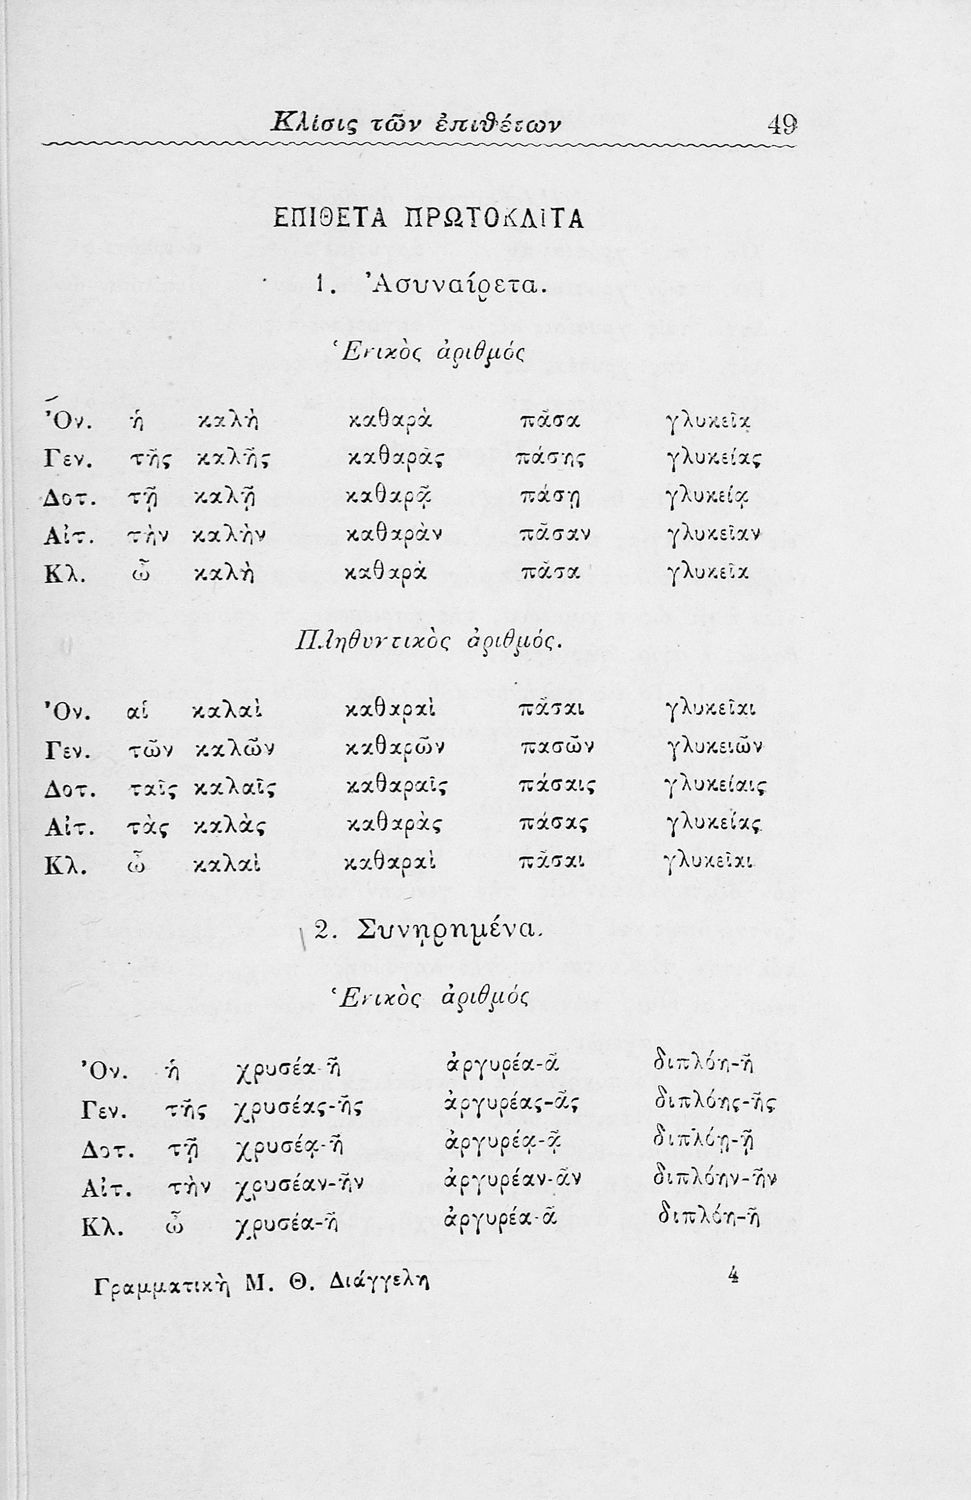 Κλίσις τῶν ἐπιθέτων 49
ΕΠΙΘΕΤΑ ΠΡΩΤΟΚΛΙΤΑ
1. Ἀσυναίρετα.
Ἑνικὸς ἀριθμός
Ὀν. ἡ καλὴ καθαρὰ πᾶσα γλυκεῖα
Γεν. τῆς καλῆς καθαρᾶς πάσης γλυκείας
Δοτ. τῇ καλῇ καθαρᾷ πάσῃ γλυκείᾳ
Αἰτ. τὴν καλὴν καθαρὰν πᾶσαν γλυκεῖαν
Κλ. ὦ καλὴ καθαρὰ πᾶσα γλυκεῖα
Πληθυντικὸς ἀριθμός.
Ὀν. αἱ καλαὶ καθαραὶ πᾶσαι γλυκεῖαι
Γεν. τῶν καλῶν καθαρῶν πασῶν γλυκειῶν
Δοτ. ταῖς καλαῖς καθαραῖς πάσαις γλυκείαις
Αἰτ. τὰς καλὰς καθαρὰς πάσας γλυκείας
Κλ. ὦ καλαὶ καθαραὶ πᾶσαι γλυκεῖαι
2. Συνηρημένα.
Ἑνικὸς ἀριθμός
Ὀν. ἡ χρυσέα-ῆ ἀργυρέα-ᾶ διπλόη-ῆ
Γεν. τῆς χρυσέας-ῆς ἀργυρέας-ᾶς διπλόης-ῆς
Δοτ. τῇ χρυσέᾳ-ῇ ἀργυρέᾳ-ᾷ διπλόῃ-ῇ
Αἰτ. τὴν χρυσέαν-ῆν ἀργυρέαν-ᾶν διπλόην-ῆν
Κλ. ὦ χρυσέα-ῆ ἀργυρέα-ᾶ διπλόη-ῆ
Γραμματικὴ Μ. Θ. Διάγγελη 4